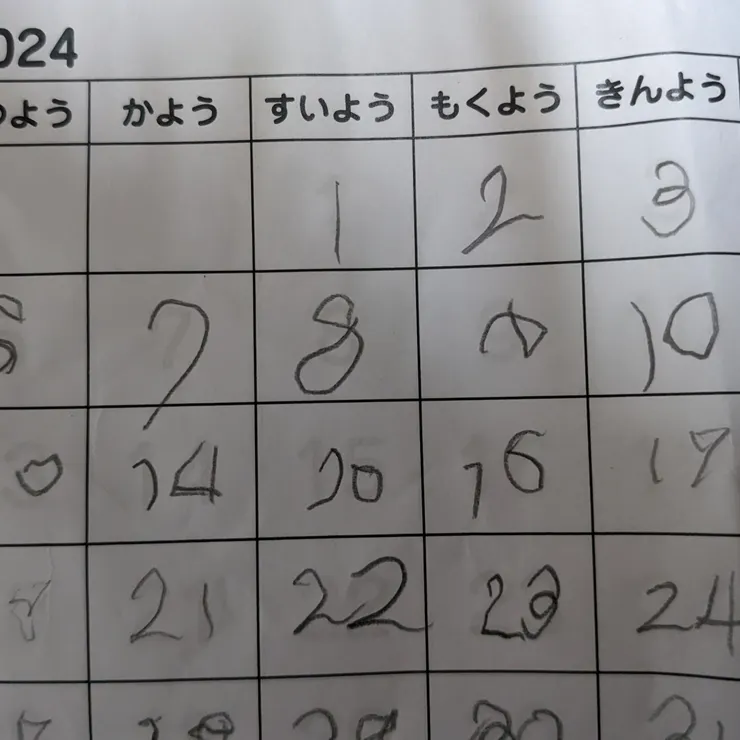 024
よう かよう すいよう もくよう きんよう
1 2 3
7 8 10
14 16 17
21 22 23 24